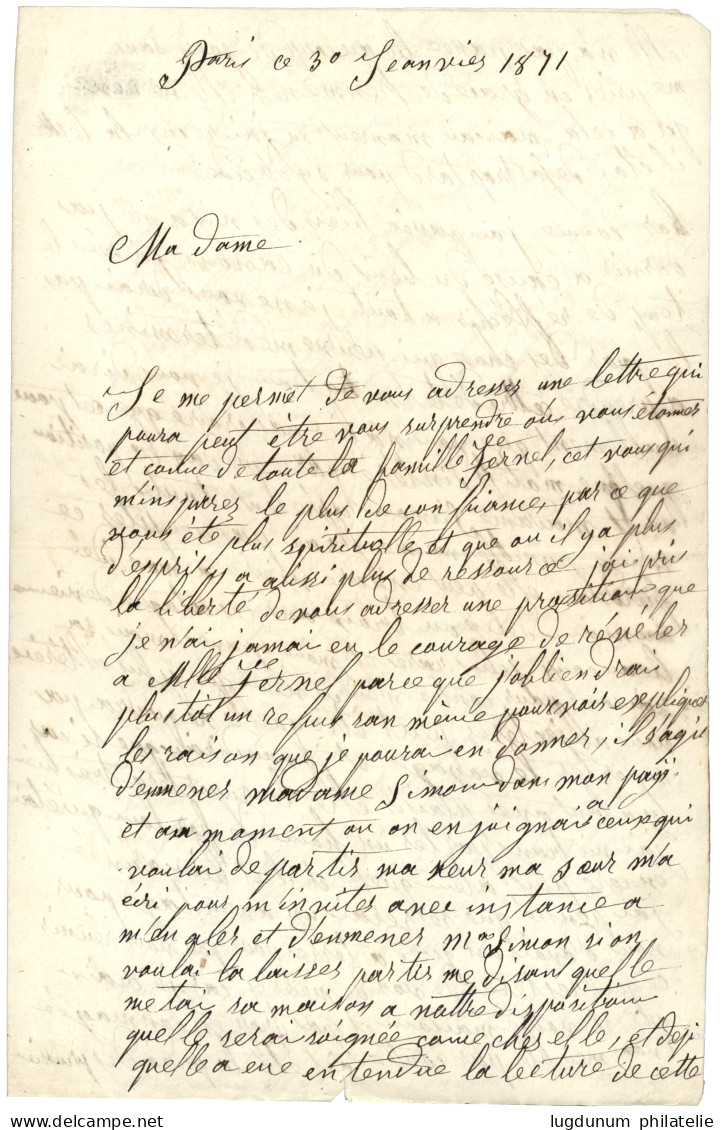 Paris ce 30 Jeanvier 1871
Madame
Je me permet de vous adresser une lettre qui
poura peut être vous surprendre ou vous étonner
et conue de toute la famille Fernel, cet vous qui
m'inspirez le plus de confiance, par ce que
vous été plus spirituelle et que ou il ya plus
d'esprit y a aussi plus de ressource j'ai pris
la liberté de vous adresser une prosition que
je n'ai jamai eu le courage de révéler
a Mlle Fernel parce que j'obtiendrai
plustôt un refus san même pouvoir expliquer
les raison que je pourai en donner, il s'agit
d'emener madame Simon dans mon pays
et au moment ou on enjoignai a ceux qui
voulai de partir ma seur ma sœur m'a
écri pour m'inviter avec instance a
m'en aler et d'enmener Mme Simon si on
voulai la laisser partir me disan quelle
metai sa maison a nottre disposition
quelle serai soignée come chez elle, et deji
quelle a eue entendue la lecture de cette
lugdunum philatelie